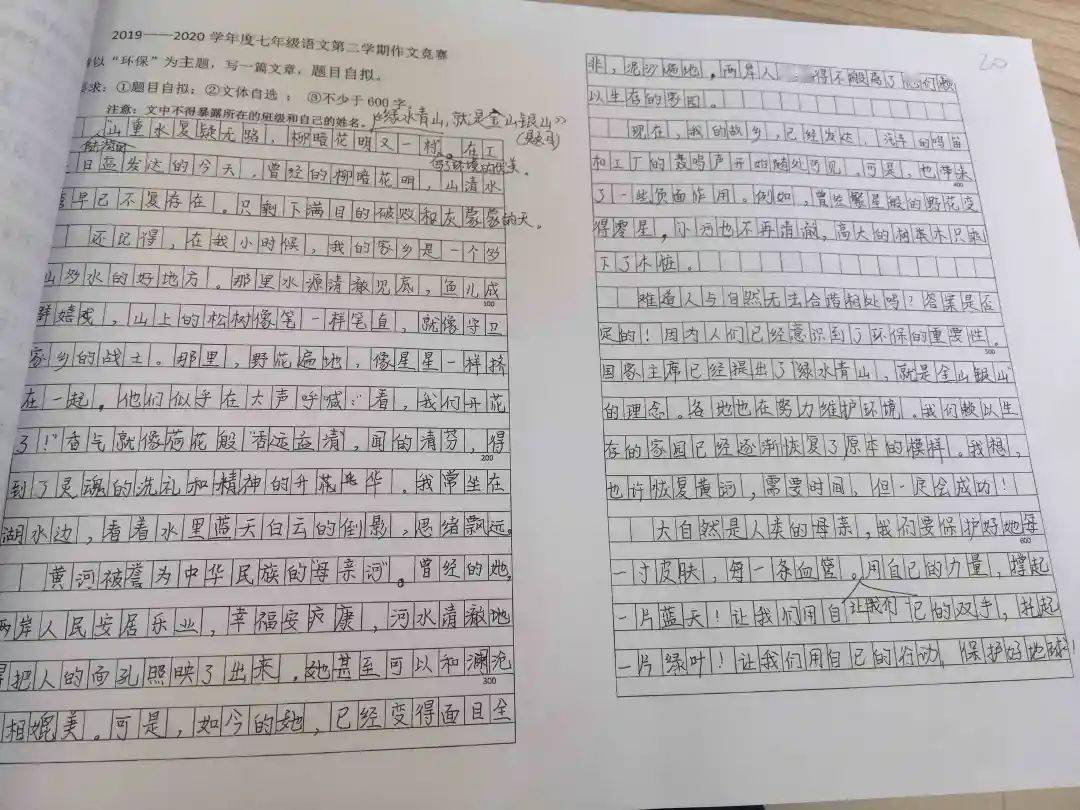 2019——2020 学年度七年级语文第二学期作文竞赛
以“环保”为主题，写一篇文章，题目自拟。
求：①题目自拟；②文体自选； ③不少于 600 字
注意：文中不得暴露所在的班级和自己的姓名。
《绿水青山，就是金山银山》
(题目)
山重水复疑无路，柳暗花明又一村。在工
日益发达的今天，曾经的柳暗花明，山清水
早已不复存在。只剩下满目的破败和灰蒙蒙的天。
还记得，在我小时候，我的家乡是一个多
山多水的好地方。那里水源清澈见底，鱼儿成
100
群嬉戏，山上的松树像笔一样笔直，就像守卫
家乡的战士。那里，野花遍地，像星星一样挤
在一起。他们似乎在大声呼喊：“看，我们开花
了！”香气就像荷花般“香远益清”，闻的清芬，得
200
到了灵魂的洗礼和精神的升华。我常坐在
湖水边，看着水里蓝天白云的倒影，思绪飘远。
黄河被誉为中华民族的“母亲河”。曾经的她，
两岸人民安居乐业，幸福安康，河水清澈地
把人的面孔照映了出来。她甚至可以和澜沧
300
相媲美。可是，如今的她，已经变得面目全
20
非，泥沙遍地。两岸人 得不搬离了他们赖
以生存的家园。
现在，我的故乡，已经发达，汽车的鸣笛
和工厂的轰鸣声开始随处可见。可是，也带来
400
了一些负面作用。例如，曾经繁星般的野花变
得零星，小河也不再清澈，高大的树木只剩
下了木桩。
难道人与自然无法合谐相处吗？答案是否
定的！因为人们已经意识到了环保的重要性。
500
国家主席已经提出了“绿水青山，就是金山银山”
的理念。各地也在努力维护环境。我们赖以生
存的家园已经逐渐恢复了原本的模样。我想，
也许恢复黄河，需要时间，但一定会成功！
大自然是人类的母亲，我们要保护好她每
600
一寸皮肤，每一条血管。用自己的力量，撑起
让我们
一片蓝天！让我们用自己的双手，托起
一片绿叶！让我们用自己的行动，保护好地球！